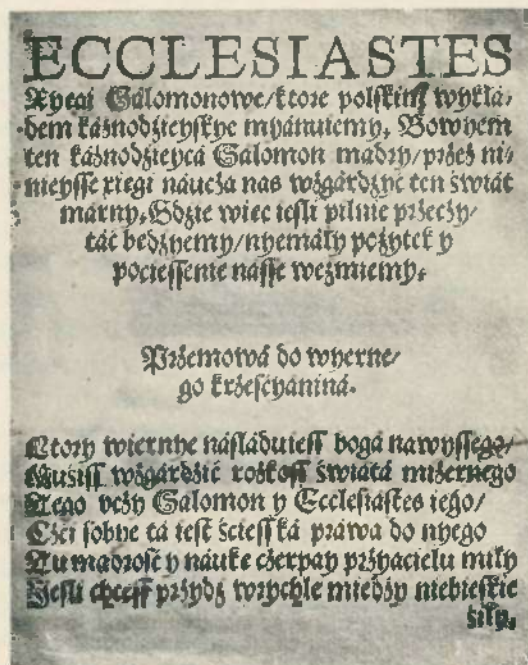 ECCLESIASTES
Xyęgi Sálomonowe/ktore polskim wykłá-
dem káznodzieyskye myánuiemy, Bowyem
ten káznodzieycá Salomon mądry/przez ni-
nieysse xięgi náucża nas wzgárdzyć ten świát
márny, Gdzie więc iesli pilnie przeczy/
táć będzyemy/nyemáły pożytek y
pociessenie násse weźmiemy.
Przemowá do wyerne/
go krześcyániná.
Ktory wiernye násláduiess bogá nawyssego/
Musiss wzgárdzić roskoss świátá mizernego
Tego vczy Salomon y Ecclesiastes iego/
Czci sobye tá iest ścieszká práwa do nyego
Tu mądrość y náukę czerpay przyiacielu miły
Jesli chcess przydź wrychle miedzy niebieskie
siły.